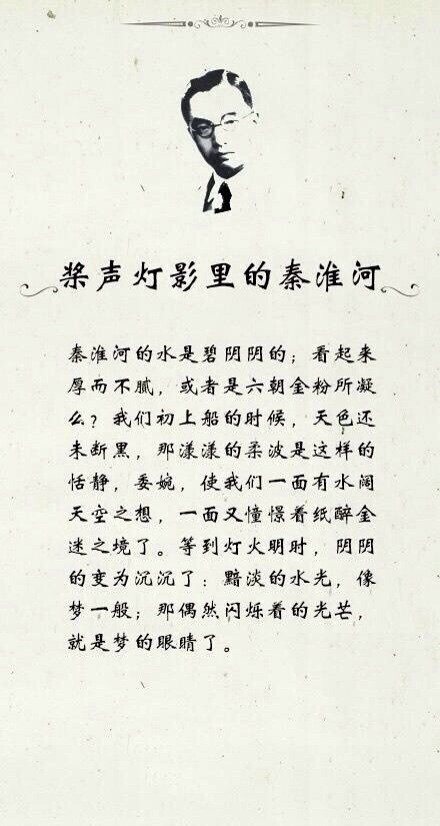 桨声灯影里的秦淮河
秦淮河的水是碧阴阴的；看起来
厚而不腻，或者是六朝金粉所凝
么？我们初上船的时候，天色还
未断黑，那漾漾的柔波是这样的
恬静，委婉，使我们一面有水阔
天空之想，一面又憧憬着纸醉金
迷之境了。等到灯火明时，阴阴
的变为沉沉了：黯淡的水光，像
梦一般；那偶然闪烁着的光芒，
就是梦的眼睛了。